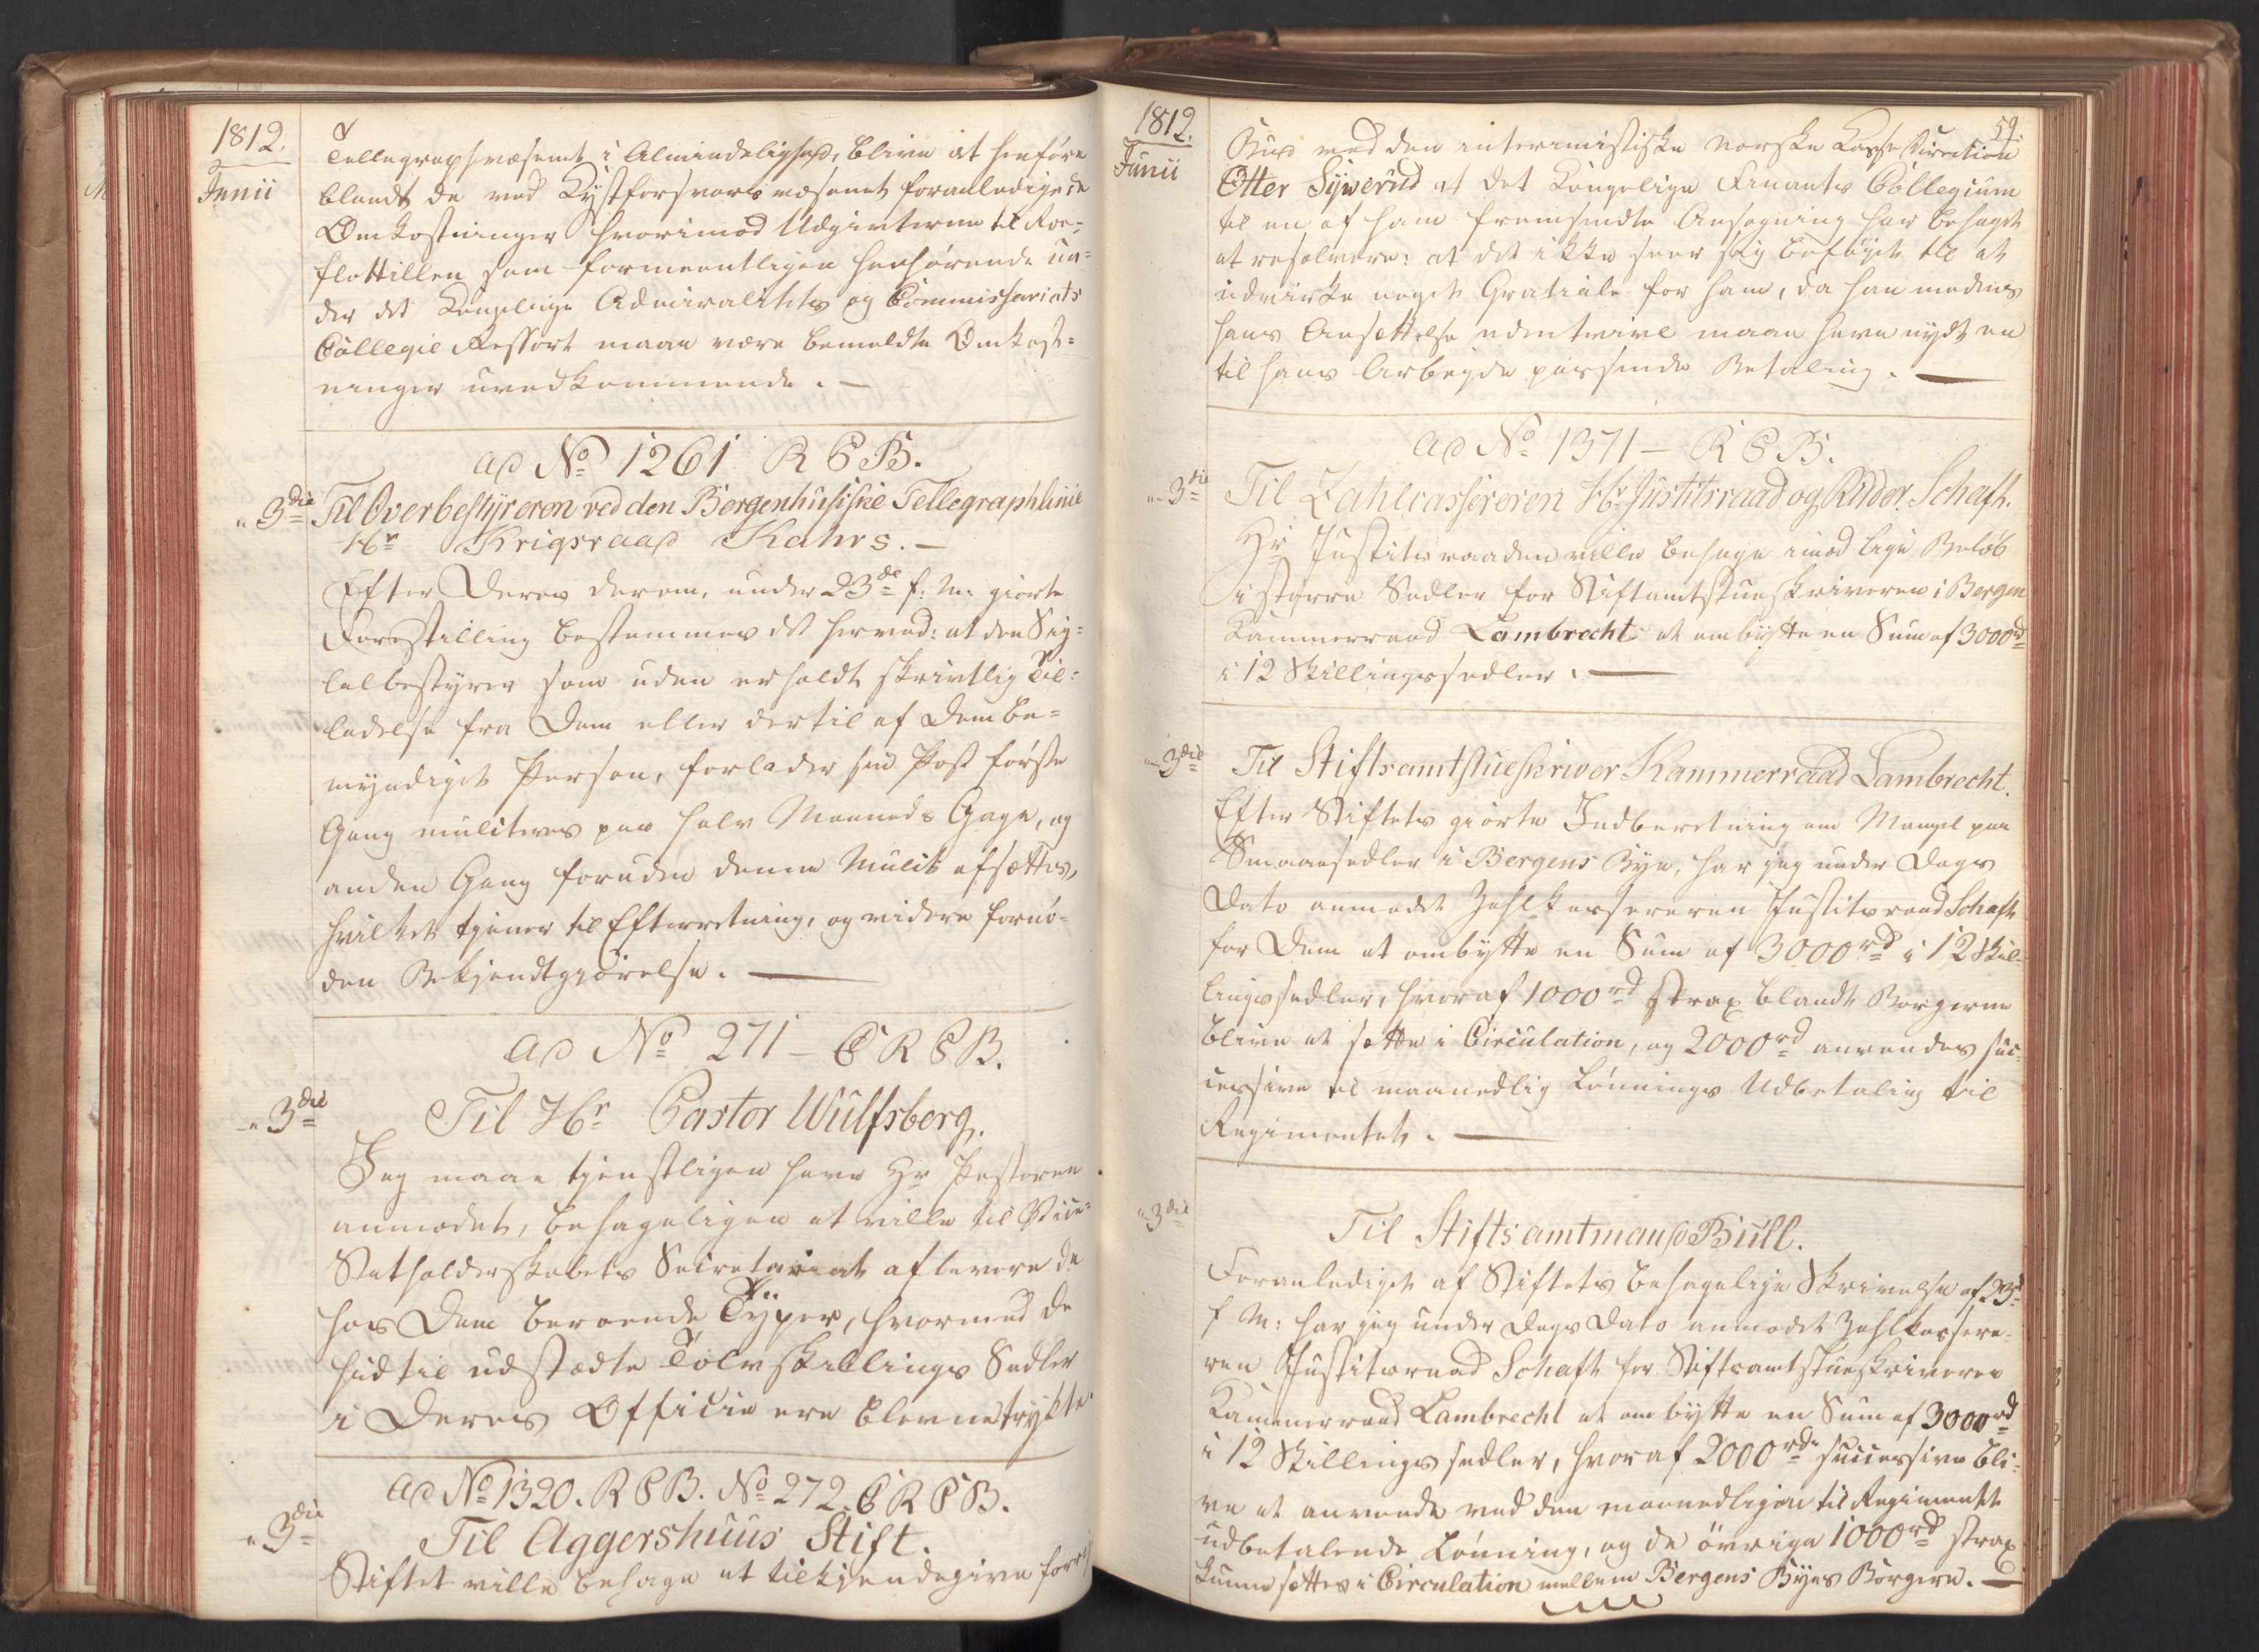 1812.
Junii
Tellegraphvæsenet i Almindelighed, blive at henføre
blandt de ved Kystforsvarsvæsenet foranledigede
Omkostninger hvorimod Udgivterne til Roe-
flottillen som formeentligen henhørende un-
der det Kongelige Admiralitets og Commissariats
Collegie Ressort maae være bemeldte Omkost-
ninger uvedkommende. —
ad No 1261 R C B.
" 3die Til Overbestyreren ved den Bergenhusiske Tellegraphlinie
Hr Krigsraad Kahrs. —
Efter Deres derom, under 23de f: M: giorte
Forestilling bestemmes det herved: at den Sig-
lalbestyrer som uden erholdt skrivtlig Til-
ladelse fra Dem eller dertil af Dem be-
myndiget Person, forlader sin Post første
Gang mulcteres paa halv Maaneds Gage, og
anden Gang foruden denne Mulct afsættes,
hvilket tjener til Efterretning, og videre fornø-
den Bekjendtgjørelse. —
ad No 271 – C R C B.
" 3die
Til Hr Pastor Wulfsberg.
Jeg maae tjenstligen have Hr Pastoren
anmodet, behageligen at ville til Vice-
Statholderskabets Secretariat aflevere de
hos Dem beroende Typer, hvormed de
hidtil udstædte Tolvskillings Sedler
i Deres Officin ere blevne trykte.
ad No 1320. R C B. No 272. C R C B.
" 3die
Til Aggershuus Stift.
Stiftet ville behage at tilkjendegive forrige
1812.
Junii
59.
Bud ved den interimistiske norske Casse Direction
Otter Sywerud at det Kongelige Finants Collegium
til en af ham fremsendte Ansøgning har behaget
at resolvere: at det ikke seer sig beføyet til at
udvirke noget Gratiale for ham, da han medens
hans Ansættelse udentvivl maae have nydt en
til hans Arbeyde passende Betaling. —
ad No 1371 – R C B.
" 3die Til Zahlcassereren Hr Justitsraad og Ridder Schaft.
Hr Justitsraaden ville behage imod lige Beløb
i større Sedler for Stiftamtstueskriveren i Bergen
Kammerraad Lambrecht at ombytte en Sum af 3000rd
i 12 Skillingssedler. —
" 3die Til Stiftsamtstueskriver Kammerraad Lambrecht.
Efter Stiftets giorte Indberetning om Mangel paa
Smaaesedler i Bergens Bye, har jeg under Dags
Dato anmodet Zahlkassereren Justitsraad Schaft
for Dem at ombytte en Sum af 3000rd i 12 Skil-
lingssedler, hvoraf 1000rd strax blandt Borgerne
blive at sætte i Circulation, og 2000rd anvendes suc-
cessive til maanedlig Lønnings Udbetaling til
Regimentet. —
" 3die
Til Stiftsamtmand Bull.
Foranlediget af Stiftets behagelige Skrivelse af 23d
f M: har jeg under Dags Dato anmodet Zahlkassere-
ren Justitsraad Schaft for Stiftsamtstueskriveren
Kammerraad Lambrecht at ombytte en Sum af 3000rd
i 12 Skillings sedler, hvoraf 2000rd successive bli-
ve at anvende ved den maanedligen til Regimentet
udbetalende Lønning, og de øvrige 1000rd strax
kunne sættes i Circulation mellem Bergens Byes Borgere. —